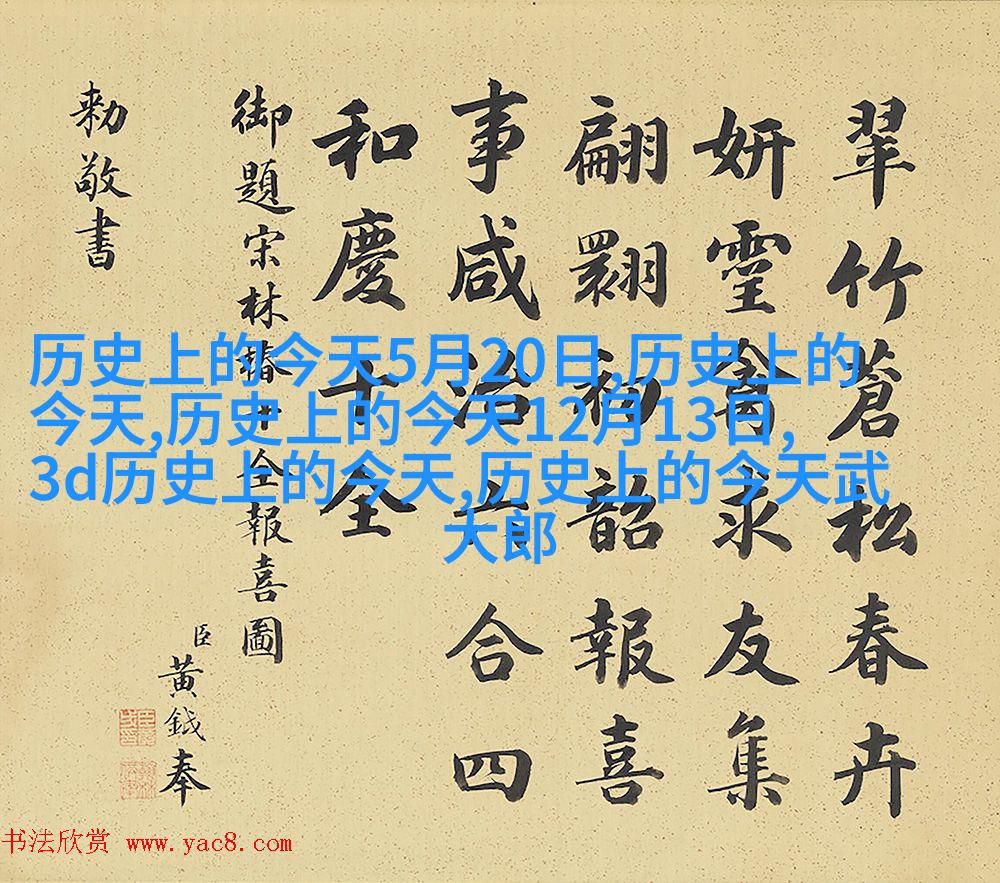 翠竹蒼松春卉
妍靈禽求友集
翩翾初韶報喜
事咸洽六合四
和慶十全
御題宋林椿十全報喜圖
臣黃鉞奉
勅敬書
历史上的今天5月20日,历史上的
今天,历史上的今天12月13日,
3d历史上的今天,历史上的今天武
大郎
书法欣赏 www.yac8.com